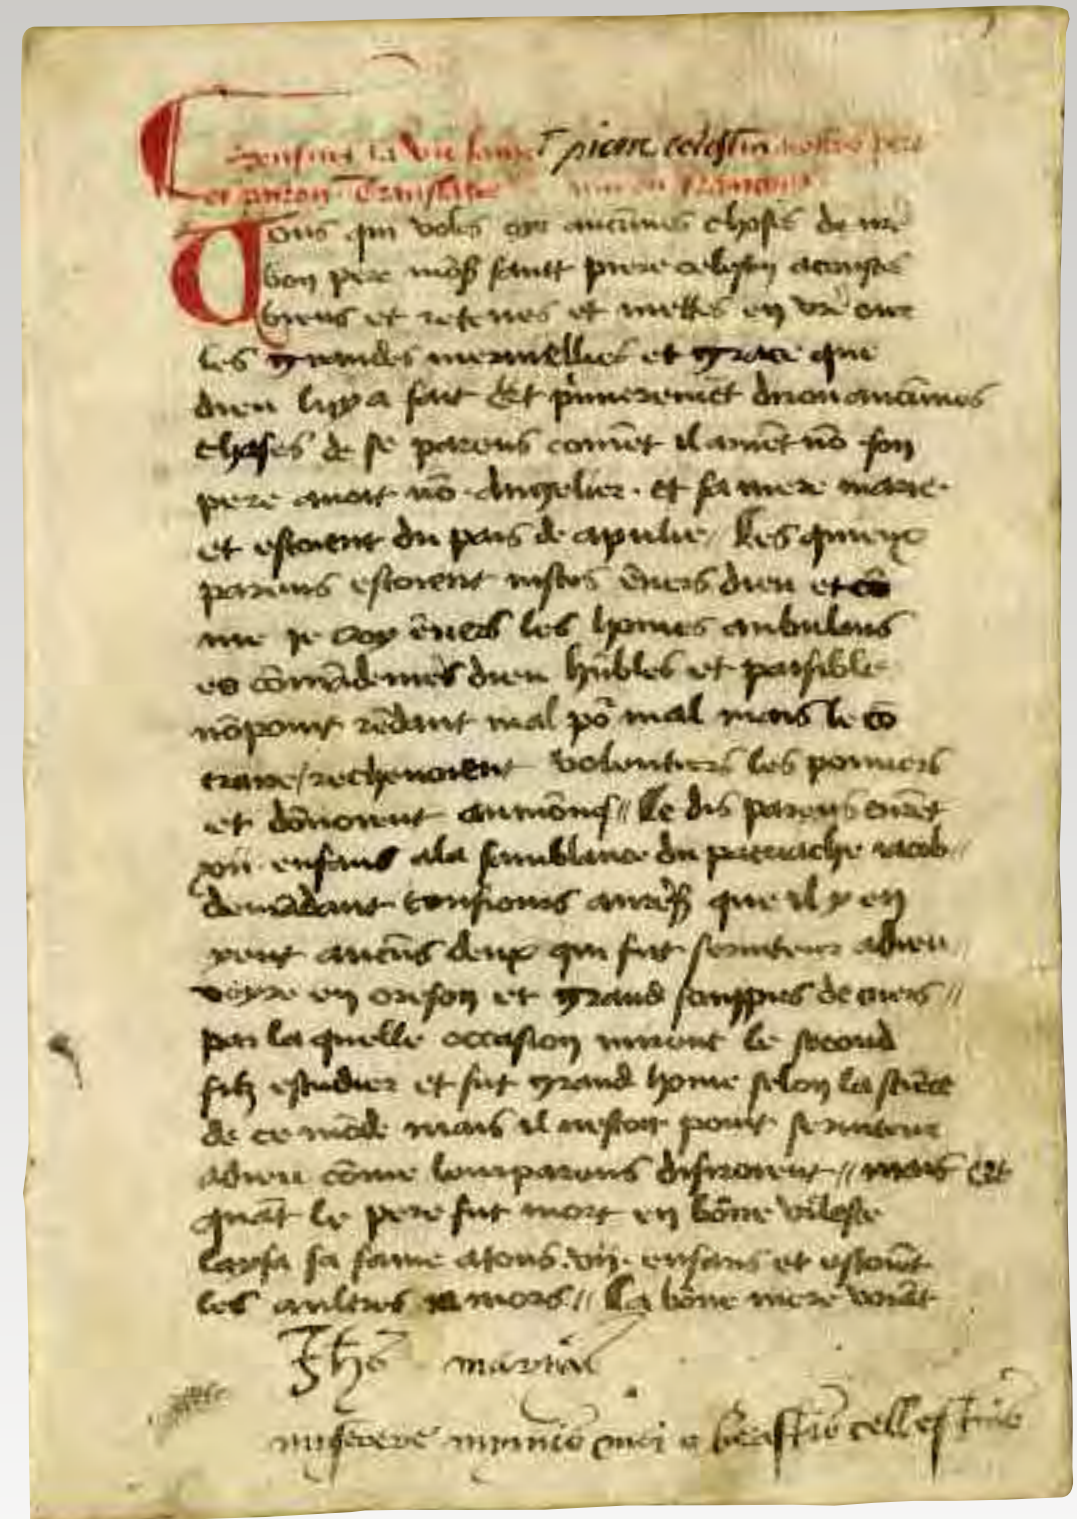 la vie saint piere celestin nostre pere
et patron Translatee en francois
Tous qui voles oyr aucunes choses de nrē
bon pere mōs saint piere celestin acoustes
biens et retenes et mettes en vrē cuer
les grandes merueilles et grace que
dieu luy a fait Et p̄merement diron aucūnes
choses de se parens comēt il auiēt nō son
pere auoit nō · Angelier · et sa mere marie ·
et estoient du pais de apulie // Les quieux
parens estoient iustes ēuers dieu et cō
me ie croy ēuers les homes anbulans
es cōmādemēs dieu hūbles et paisible
nōpoint rēdant mal pō mal mais le cō
traire / rechevoient volentiers les pouures
et dōnoient aumōnes // Le dis parens eurēt
xii · enfans ala semblance du patriache iacob //
demādant tousiours que il y en
yeut aucūs deux qui fut seruiteur adieu
voyre en oreson et grand souppirs de cuers //
par la quelle occasion mirent le second
filz estudier et fut grand home selon la sciēce
de ce mōde mais il nestoit point seruiteur
adieu cōme lour parens desiroient // mais Et
quāt le pere fut mort en bōne vilesse
layssa sa fame atous · vii · enfans et estoiēt
les aultres mors // La bōne mere voiāt
Ihs maria
miserere mei o celestine